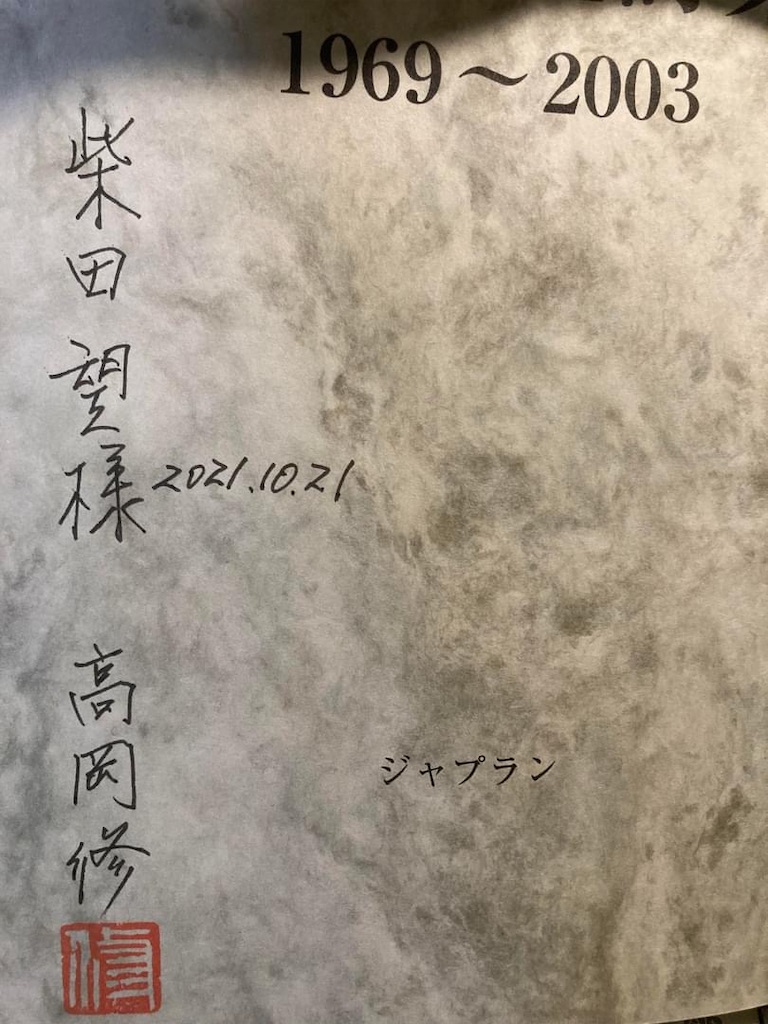 1969～2003
柴田望様
2021.10.21
高岡修
ジャプラン
修